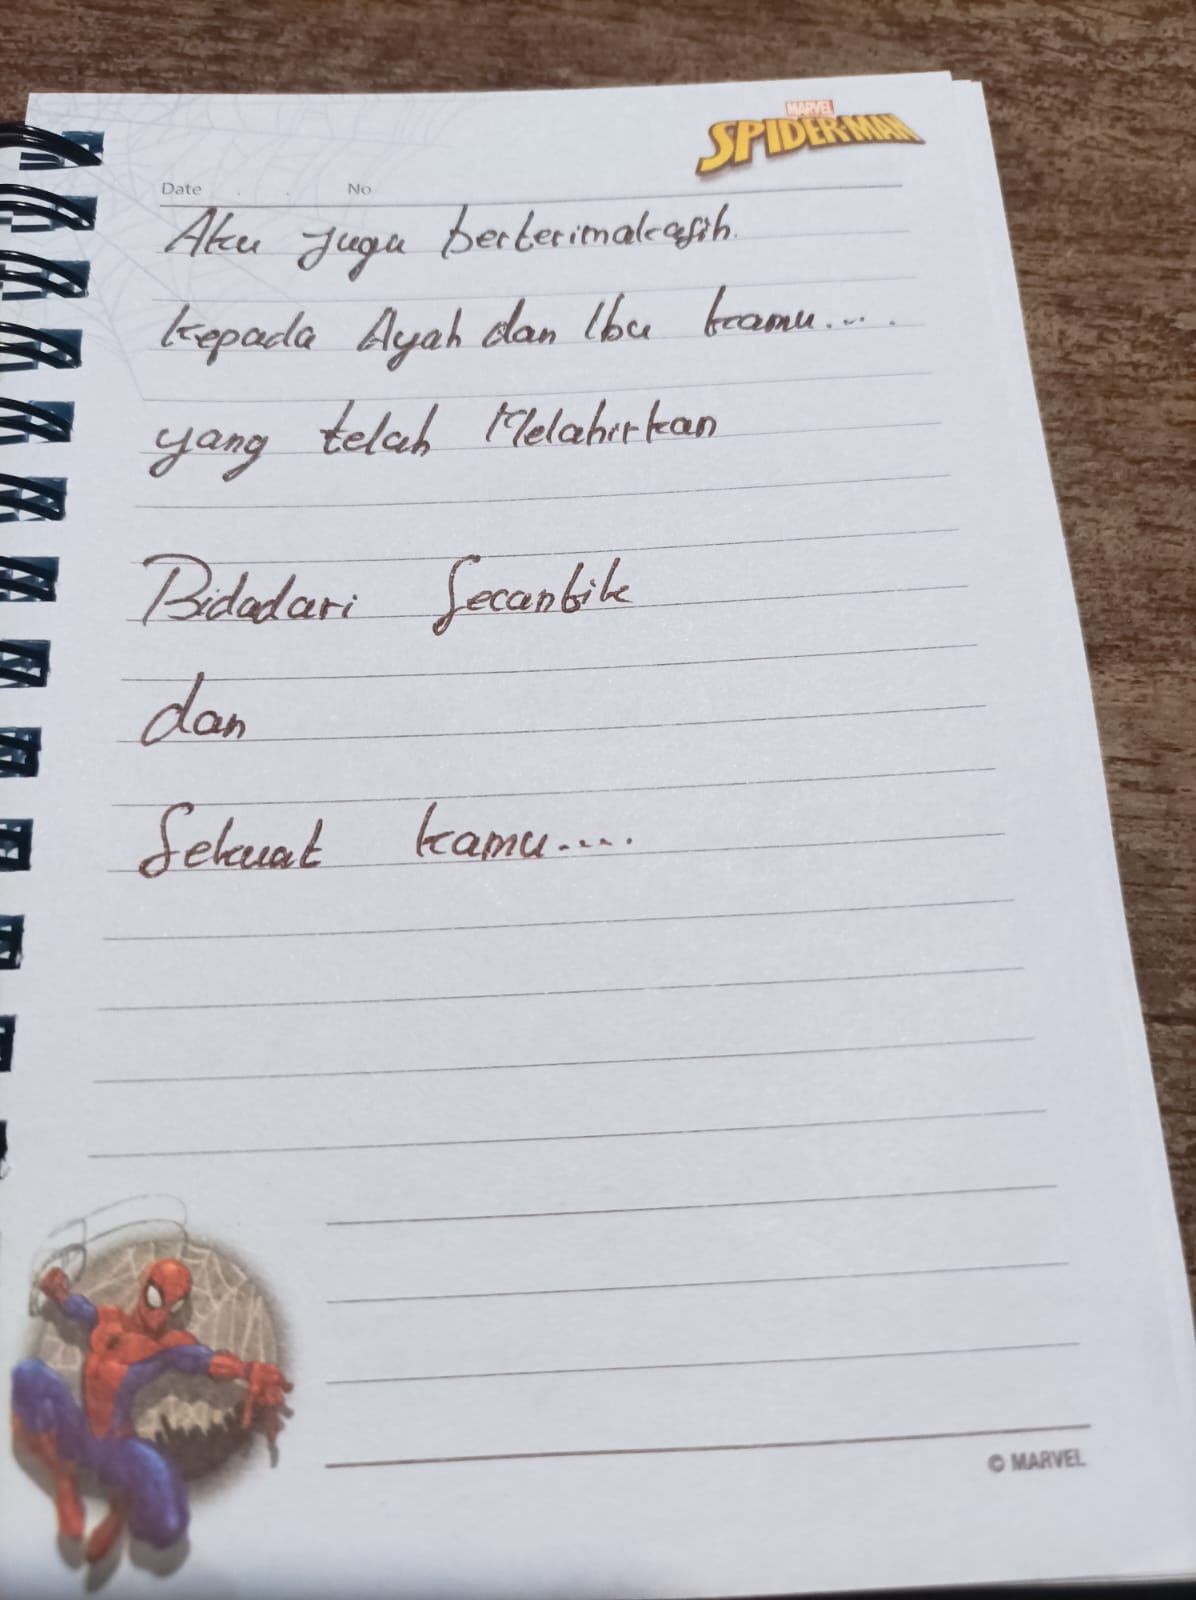 MARVEL
SPIDER-MAN
Date . . No
Aku juga berterimakasih.
kepada Ayah dan Ibu kamu....
yang telah Melahirkan
Bidadari Secantik
dan
Sekuat kamu....
© MARVEL